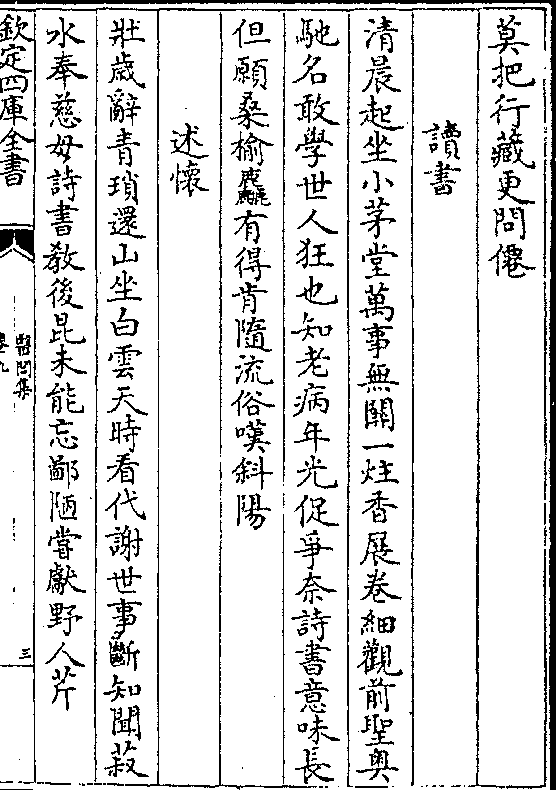 莫把行藏更問僊
讀書
清晨起坐小茅堂萬事無關一炷香展卷細觀前聖奥
馳名敢學世人狂也知老病年光促爭奈詩書意味長
但願桑榆麤有得肯隨流俗嘆斜陽
述懷
壯歲辭青瑣還山坐白雲天時看代謝世事斷知聞菽
水奉慈母詩書教後昆未能忘鄙陋嘗獻野人芹
欽定四庫全書
醫閭集
卷九
三